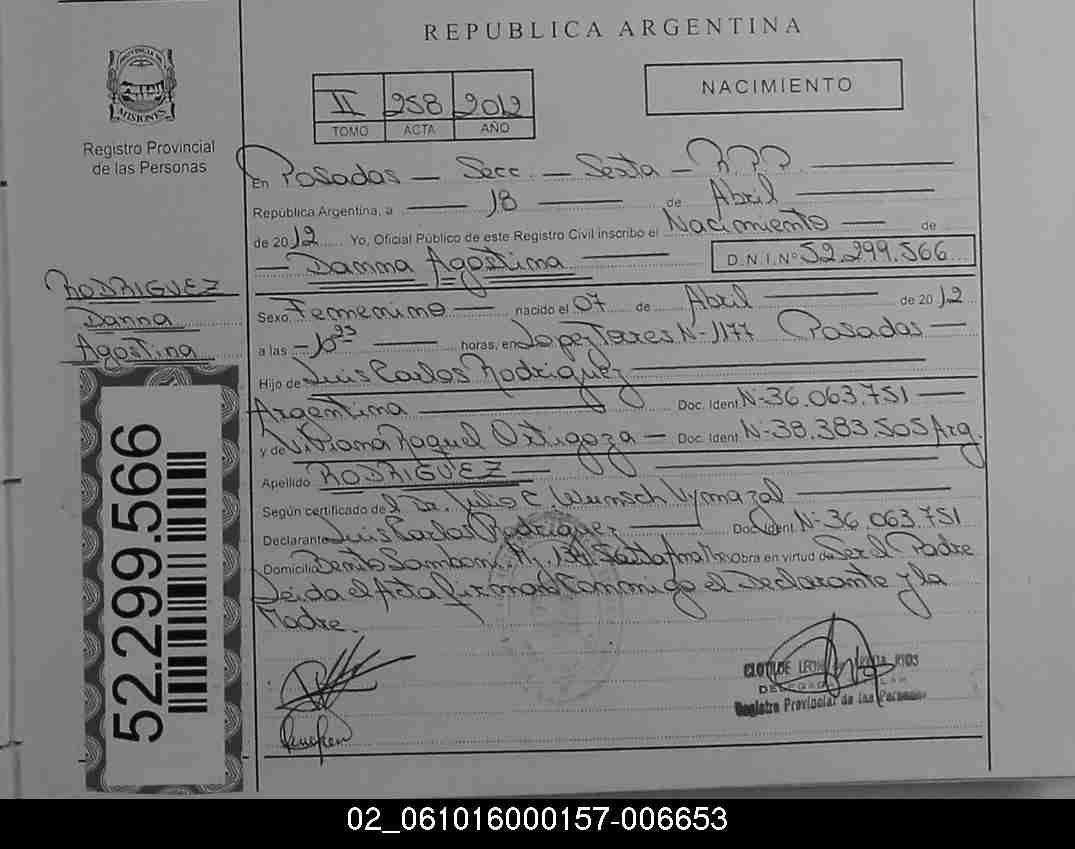 REPUBLICA ARGENTINA
PROVINCIA DE MISIONES
Registro Provincial
de las Personas
II 258 2012
TOMO ACTA AÑO
NACIMIENTO
En Posadas — Secc. — Sexta — R.P.P.
República Argentina, a — 18 — de Abril
de 2012 Yo, Oficial Público de este Registro Civil inscribo el Nacimiento — de
Danna Agostina D.N.I.Nº 52.299.566
RODRIGUEZ
Danna
Agostina
Sexo Femenino — nacido el 07 de Abril — de 2012
a las — 10 — horas, en Lopez Torres N-1177 Posadas —
Hijo de Luis Carlos Rodriguez
Argentina — Doc. Ident. N-36.063.751 —
y de Viviana Raquel Ortigoza — Doc. Ident. N-38.383.505 Arg.
Apellido RODRIGUEZ —
Según certificado del Dr. Julio C Wunsch Vymazal
Declarante Luis Carlos Rodriguez — Doc. Ident. N-36.063.751
Domicilio Benito Obra en virtud de Ser el Padre
Leida el Acta firman Conmigo el Declarante y la
Madre.
52.299.566
CLOTILDE RIOS
Registro Provincial de las Personas
02_061016000157-006653